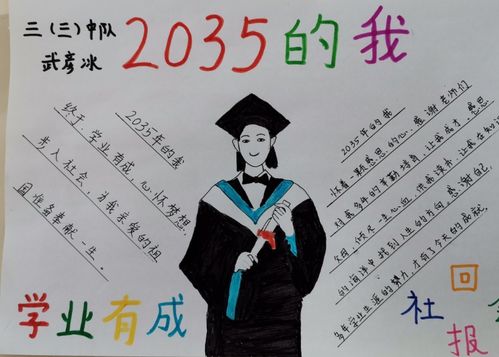 三(三)中队
武彦冰
2035的我
2035年的我
终于,学业有成,心怀梦想,
步入社会,为我亲爱的祖
国准备奉献一生。
2035年的我
怀着一颗感恩的心,感谢老师们
对我多年的辛勤培育,让我成才,感恩
父母,倾尽一生心血,供我读书,让我在知识
的海洋中找到人生的方向,感谢自己
多年学业生涯的努力,才有了今天的成就。
学业有成
回
社
报